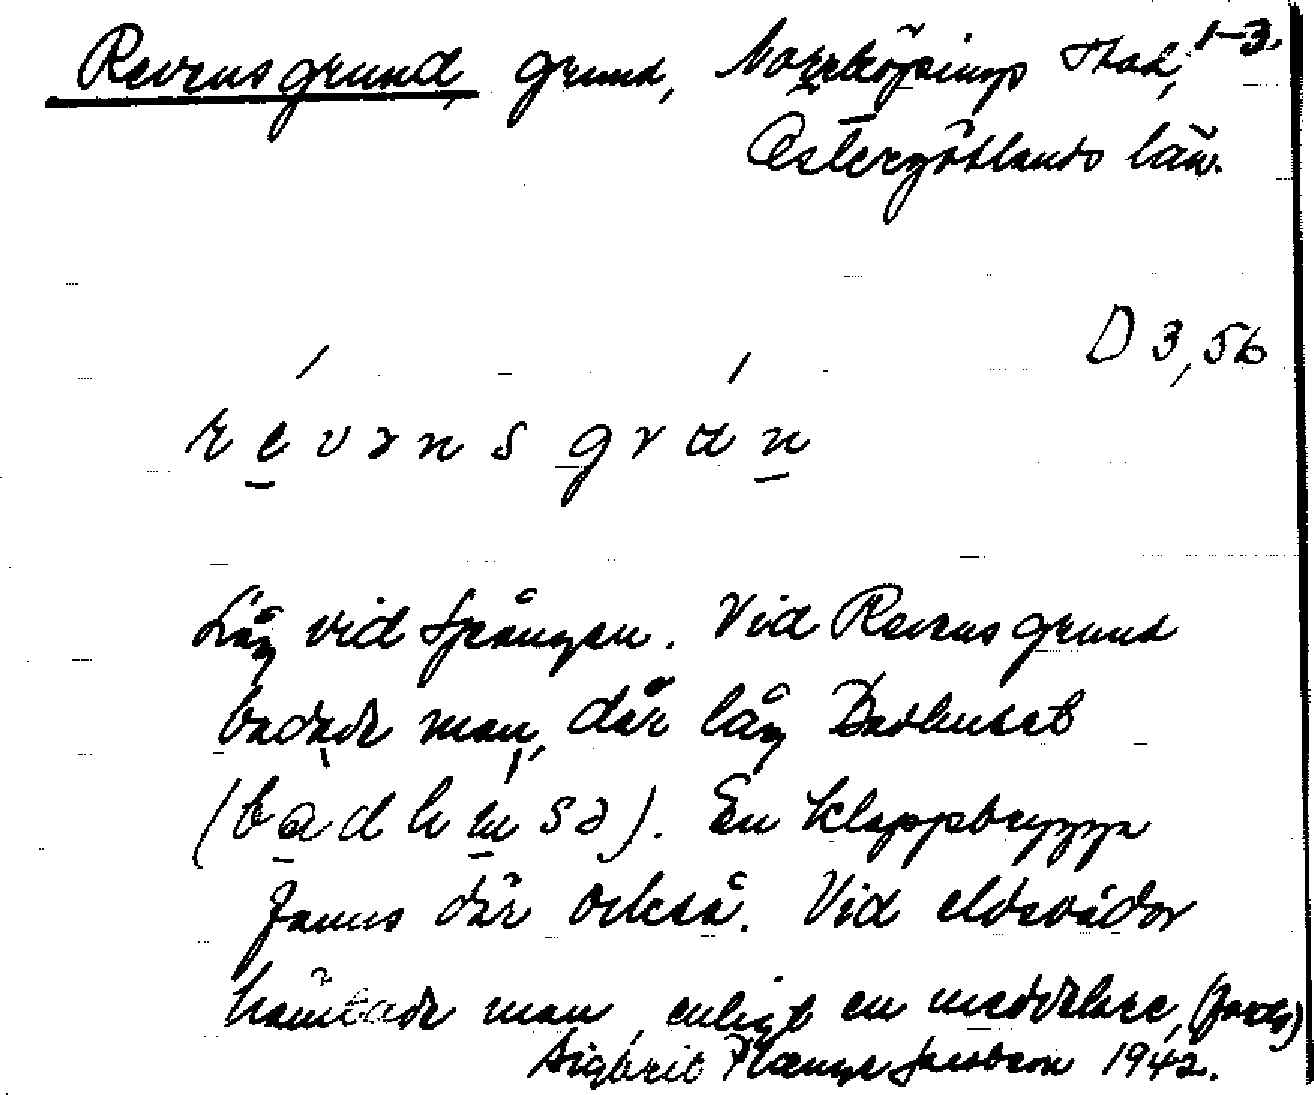 Revensgrund, grund, Norrköpings stad, 1-3.
Östergötlands län.
D 3,56
révənsgrán
Låg vid Spången. Vid Revensgrund
badade man, där låg Badhuset
(badhusə). En klappbrygga
fanns där också. Vid eldsvådor
hämtade man, enligt en meddelare, (forts)
Sigbrit Plænge Jacobson 1942.